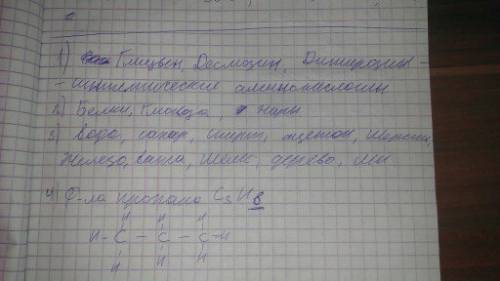 1) Глицвен Десмозин, Дитирозины -
- аминокислоты
2) Белки, Глюкоза, жиры
3) Вода, сахар, спирт, ацетон,
Железо, сажа, Мел, дерево,
4) Ф-ла пропана C3H8
H H H
H - C - C - C - H
H H H